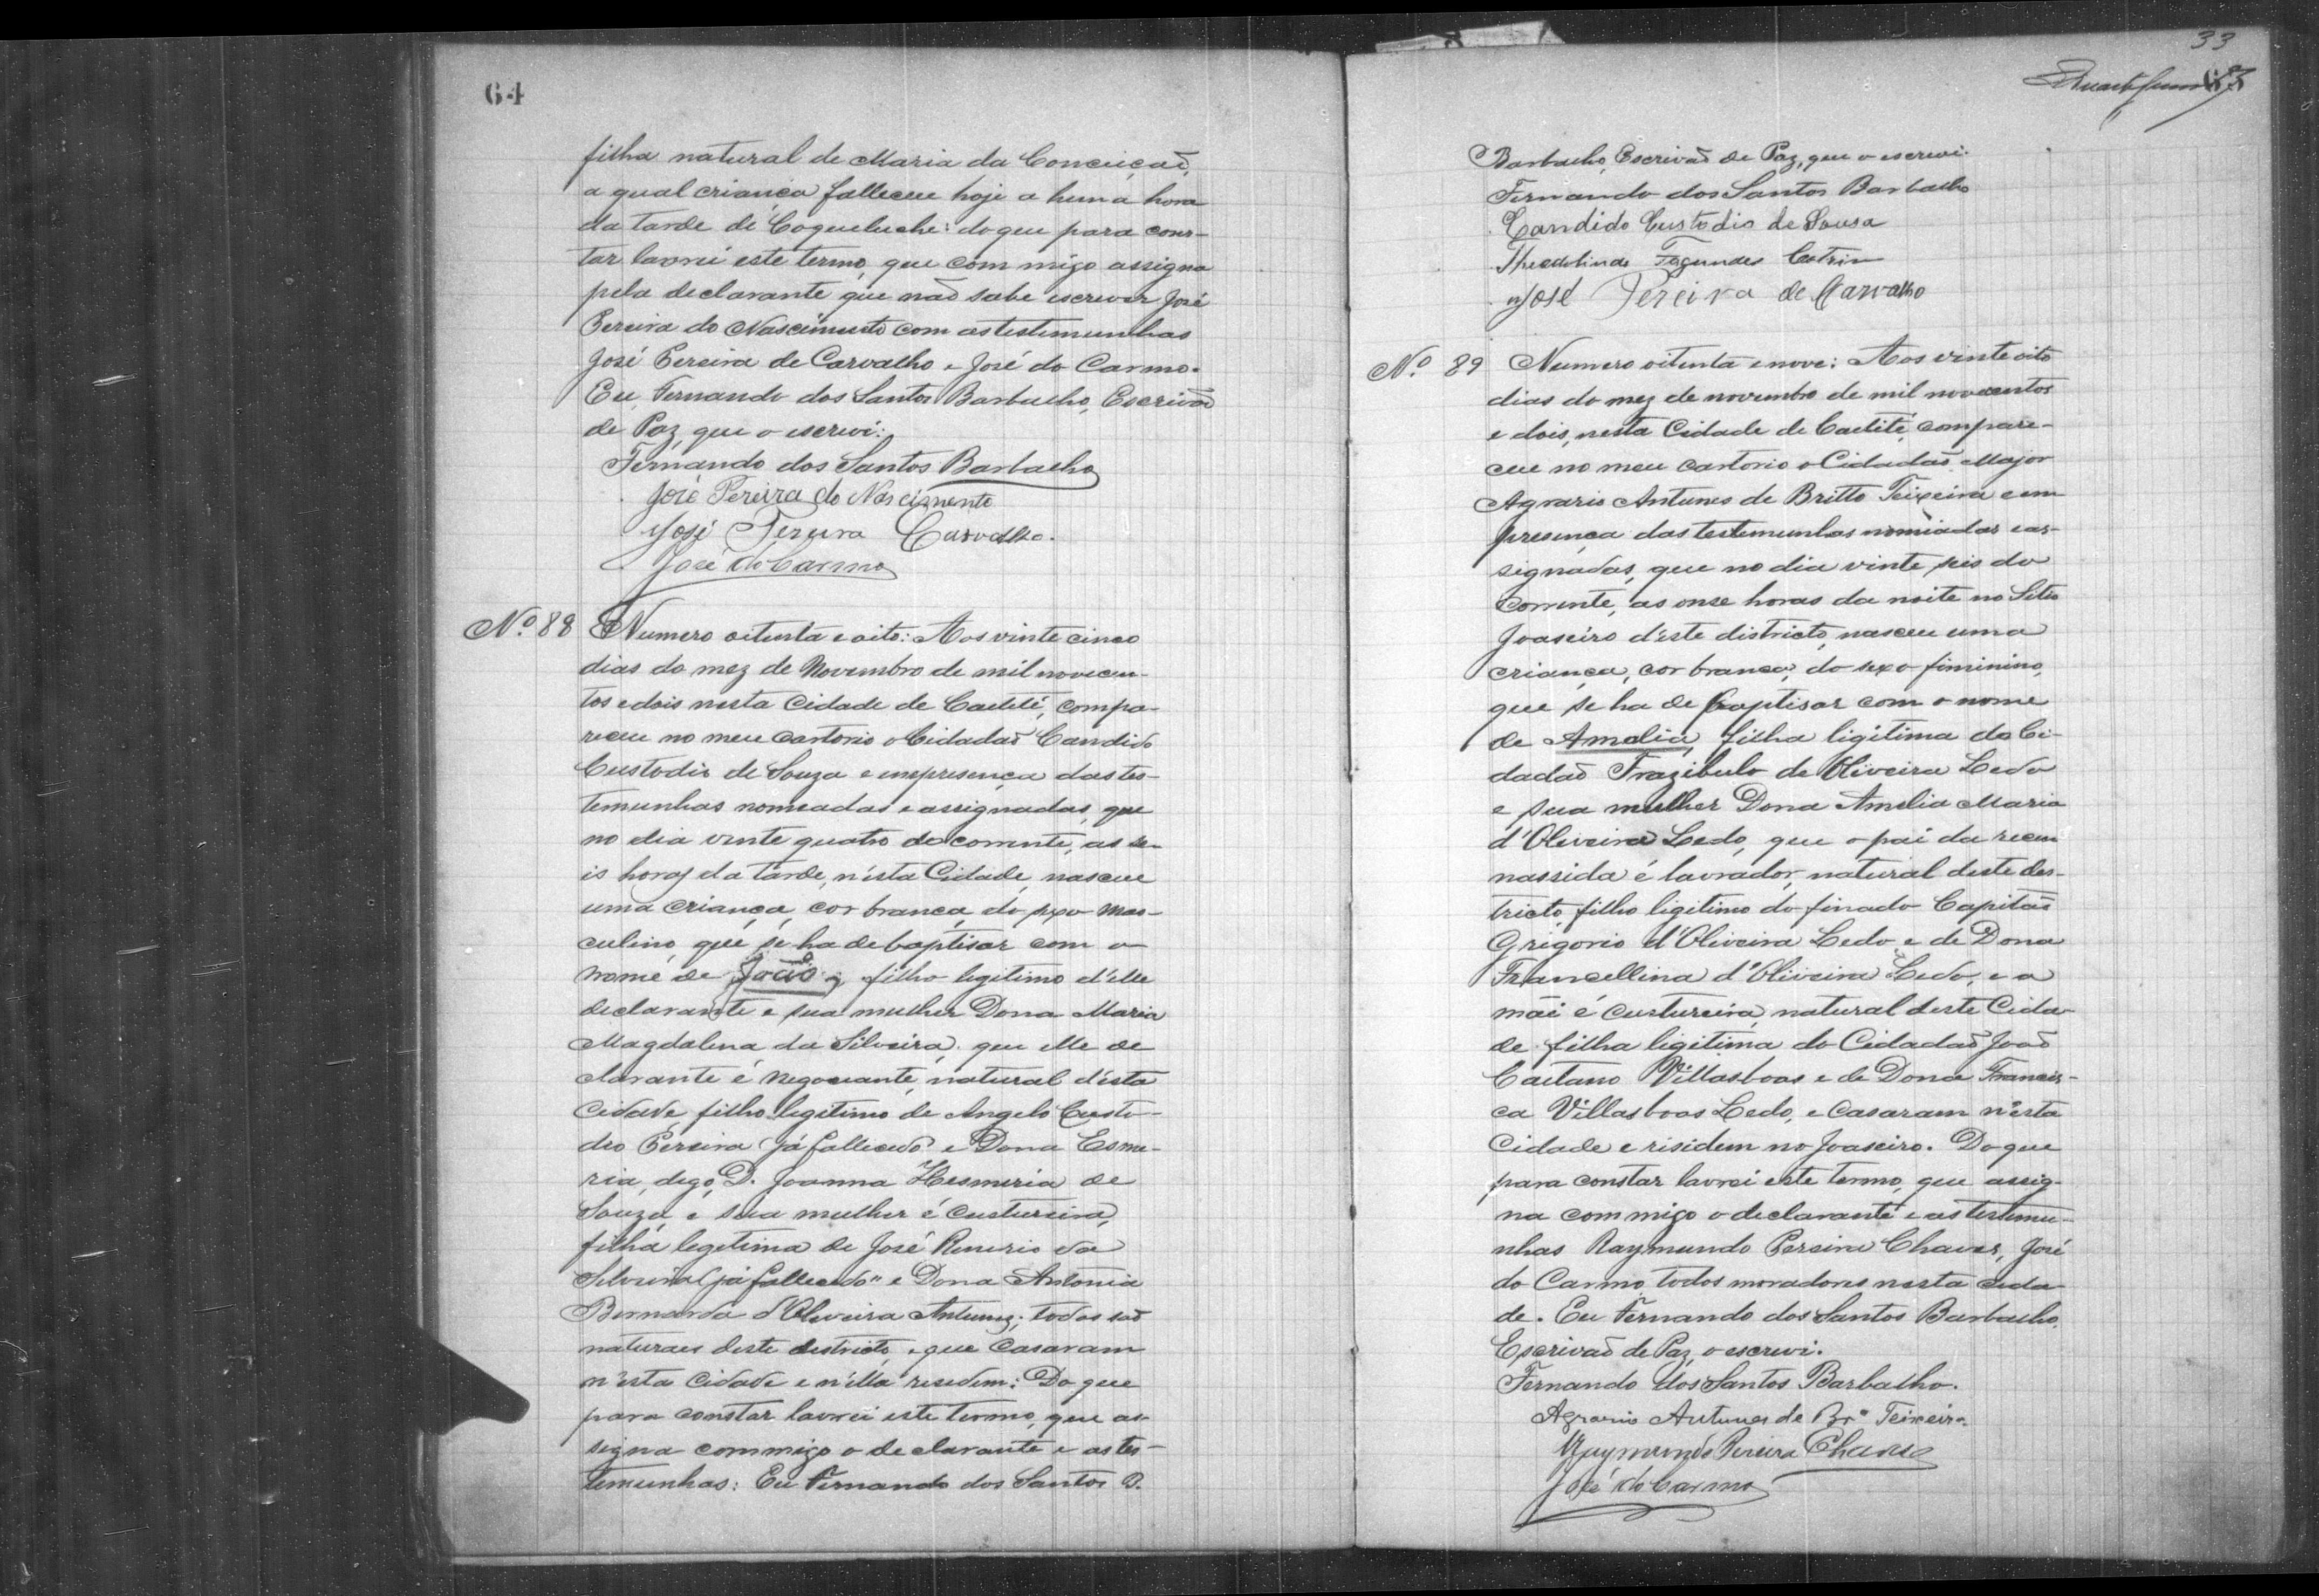 64
filha natural de Maria da Conceiçaõ,
a qual criança falleceu hoje a huma hora
da tarde de Coqueluche: do que para cons-
tar lavrei este termo, que com migo assigna
pela declarante que naõ sabe escrever José
Pereira do Nascimento com as testemunhas
José Pereira de Carvalho e José do Carmo.
Eu Fernando dos Santos Barbalho, Escrivaõ
de Paz, que o escrevi:
Fernando dos Santos Barbalho
José Pereira do Nascimento
José Pereira Carvalho.
José do Carmo
Nº 88 Numero oitenta e oito: Aos vinte cinco
dias do mez de Novembro de mil novecen-
tos e dois nesta Cidade de Caeteté, compa-
receu no meu Cartorio o Cidadaõ Candido
Custodio de Souza e em presença das tes-
temunhas nomeadas e assignadas, que
no dia vinte quatro do corrente, as se-
is horas da tarde, n'esta Cidade, nasceu
uma criança, cor branca, do sexo mas-
culino, que se ha de baptisar com o
nome de Joaõ, filho legitimo d'elle
declarante e sua mulher Dona Maria
Magdalena da Silveira, que elle de
clarante é negociante, natural d'esta
Cidade, filho legitimo de Angelo Custo-
dio Pereira já fallecido e Dona Esme-
ria, digo, D. Joanna Hesmeria de
Souza, e sua mulher é Custureira,
filha legetima de José Renerio da
Silveira (já fallecido" e Dona Antonia
Bernarda d'Oliveira Antunes; todos saõ
naturaes deste destricto, e que Casaram
n'esta Cidade e n'ella residem: Do que
para constar lavrei este termo, que as-
signa commigo o declarante e as tes-
temunhas: Eu Fernando dos Santos B.
33
Barbalho, Escrivaõ de Paz, que o escrevi.
Fernando dos Santos Barbalho
Candido Custodio de Sousa
Theodolindo Fagundes Cotrim
José Pereira de Carvalho
Nº 89 Numero oitenta e nove: Aos vinte oito
dias do mez de novembro de mil novecentos
e dois, nesta Cidade de Caetité, compare-
ceu no meu cartorio o Cidadaõ Major
Agrario Antunes de Britto Teixeira e em
presença das testemunhas nomiadas e as-
signadas, que no dia vinte seis do
Corrente, as onse horas da noite no Sitio
Joaseiro d'este districto, nasceu uma
criança, cor branca, do sexo fiminino,
que se ha de baptisar com o nome
de Amalia, filha ligitima do Ci-
dadaõ Frazibulo de Oliveira Ledo
e sua mulher Dona Amelia Maria
d'Oliveira Ledo, que o pai da recem
nassida é lavrador, natural deste des-
tricto, filho ligitimo do finado Capitaõ
Grigorio d'Oliveira Ledo e de Dona
Francellina d'Oliveira Ledo, e a
mãi é Custureira, natural deste Cida-
de filha ligitima do Cidadaõ Joaõ
Caetano Villasboas e de Dona Francis-
ca Villasboas Ledo, e Casaram n'esta
Cidade e risidem no Joaseiro. Do que
para constar lavrei este termo, que assig-
na commigo o declarante e as testemu-
nhas Raymundo Pereira Chaves, José
do Carmo, todos moradores nesta cida-
de. Eu Fernando dos Santos Barbalho,
Escrivaõ de Paz, o escrevi.
Fernando dos Santos Barbalho.
Agrario Antunes de Brº Teixeira.
Raymundo Pereira Chaves
José do Carmo